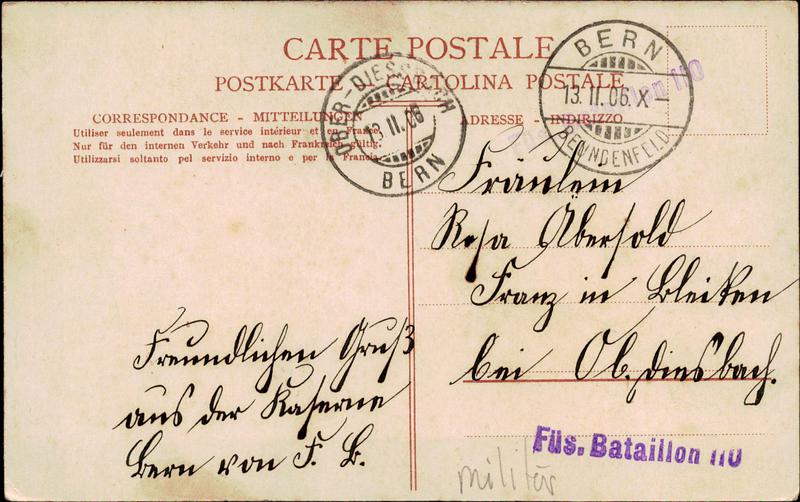 CARTE POSTALE
POSTKARTE CARTOLINA POSTALE
CORRESPONDANCE - MITTEILUNGEN
Utiliser seulement dans le service intérieur et en France.
Nur für den internen Verkehr und nach Frankreich gültig.
Utilizzarsi soltanto pel servizio interno e per la Francia.
ADRESSE - INDIRIZZO
OBER-DIESSBACH
13.II.06
BERN
BERN
13.II.06.X-
BEUNDENFELD
Fräulein
Rosa Äbersold
Franz in Bleiken
bei Ob. Diesbach.
Freundlichen Gruß
aus der Kaserne
Bern von F. B.
Füs. Bataillon 110
militär